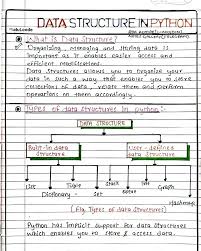 DATA STRUCTURE IN PYTHON
What is Data Structure?
Organizing, managing and storing data is
important as it enables easier access and
efficient modifications.
Data Structures allows you to organize your
data in such a way that enable you to store
collections of data, relate them and perform
operations on them accordingly.
Types of data structures in python:-
Data STRUCTURE
Built-in data structure
User-defined data structure
List
Dictionary
Tuple
Set
Stack
Tree
Graph
Hashmap
(Fig. Types of data Structures)
Python has implicit support for data structures
which enables you to store & access data.